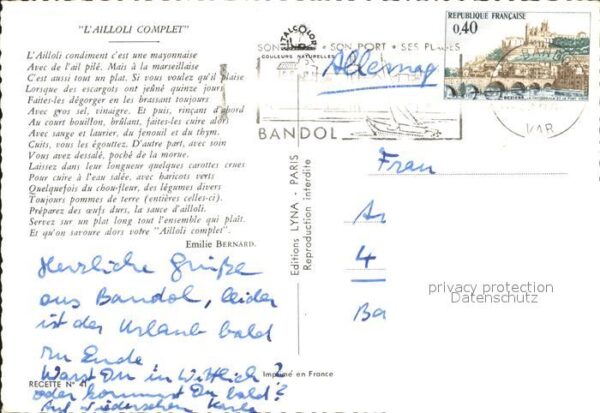 "L'AILLOLI COMPLET"
L'Ailloli condiment c'est une mayonnaise
Avec de l'ail pilé. Mais à la marseillaise
C'est aussi tout un plat. Si vous voulez qu'il plaise
Lorsque des escargots ont jeûné quinze jours
Faites-les dégorger en les brassant toujours
Avec gros sel, vinaigre. Et puis, rinçant d'abord
Au court bouillon, brûlant, faites-les cuire alors
Avec sauge et laurier, du fenouil et du thym.
Cuits, vous les égouttez. D'autre part, avec soin
Vous avez dessalé, poché de la morue.
Laissez dans leur longueur quelques carottes crues
Pour cuire à l'eau salée, avec haricots verts
Quelquefois du chou-fleur, des légumes divers
Toujours pommes de terre (entières celles-ci).
Préparez des œufs durs, la sauce d'ailloli.
Servez sur un plat long tout l'ensemble qui plaît.
Et qu'on savoure alors votre "Ailloli complet".
Emilie BERNARD.
Herzliche Grüße
aus Bandol, leider
ist der Urlaub bald
zu Ende
Warst Du in Wittlich?
oder kommst Du bald?
Auf Wiedersehen
RECETTE N° 41
Imprimé en France
Editions LYNA - PARIS
Reproduction interdite
ITALCOLOR
COULEURS NATURELLES
SON PORT SES PLAGES
BANDOL
VAR
REPUBLIQUE FRANÇAISE
0,40
Allemag
Frau
4
Ba
privacy protection
Datenschutz